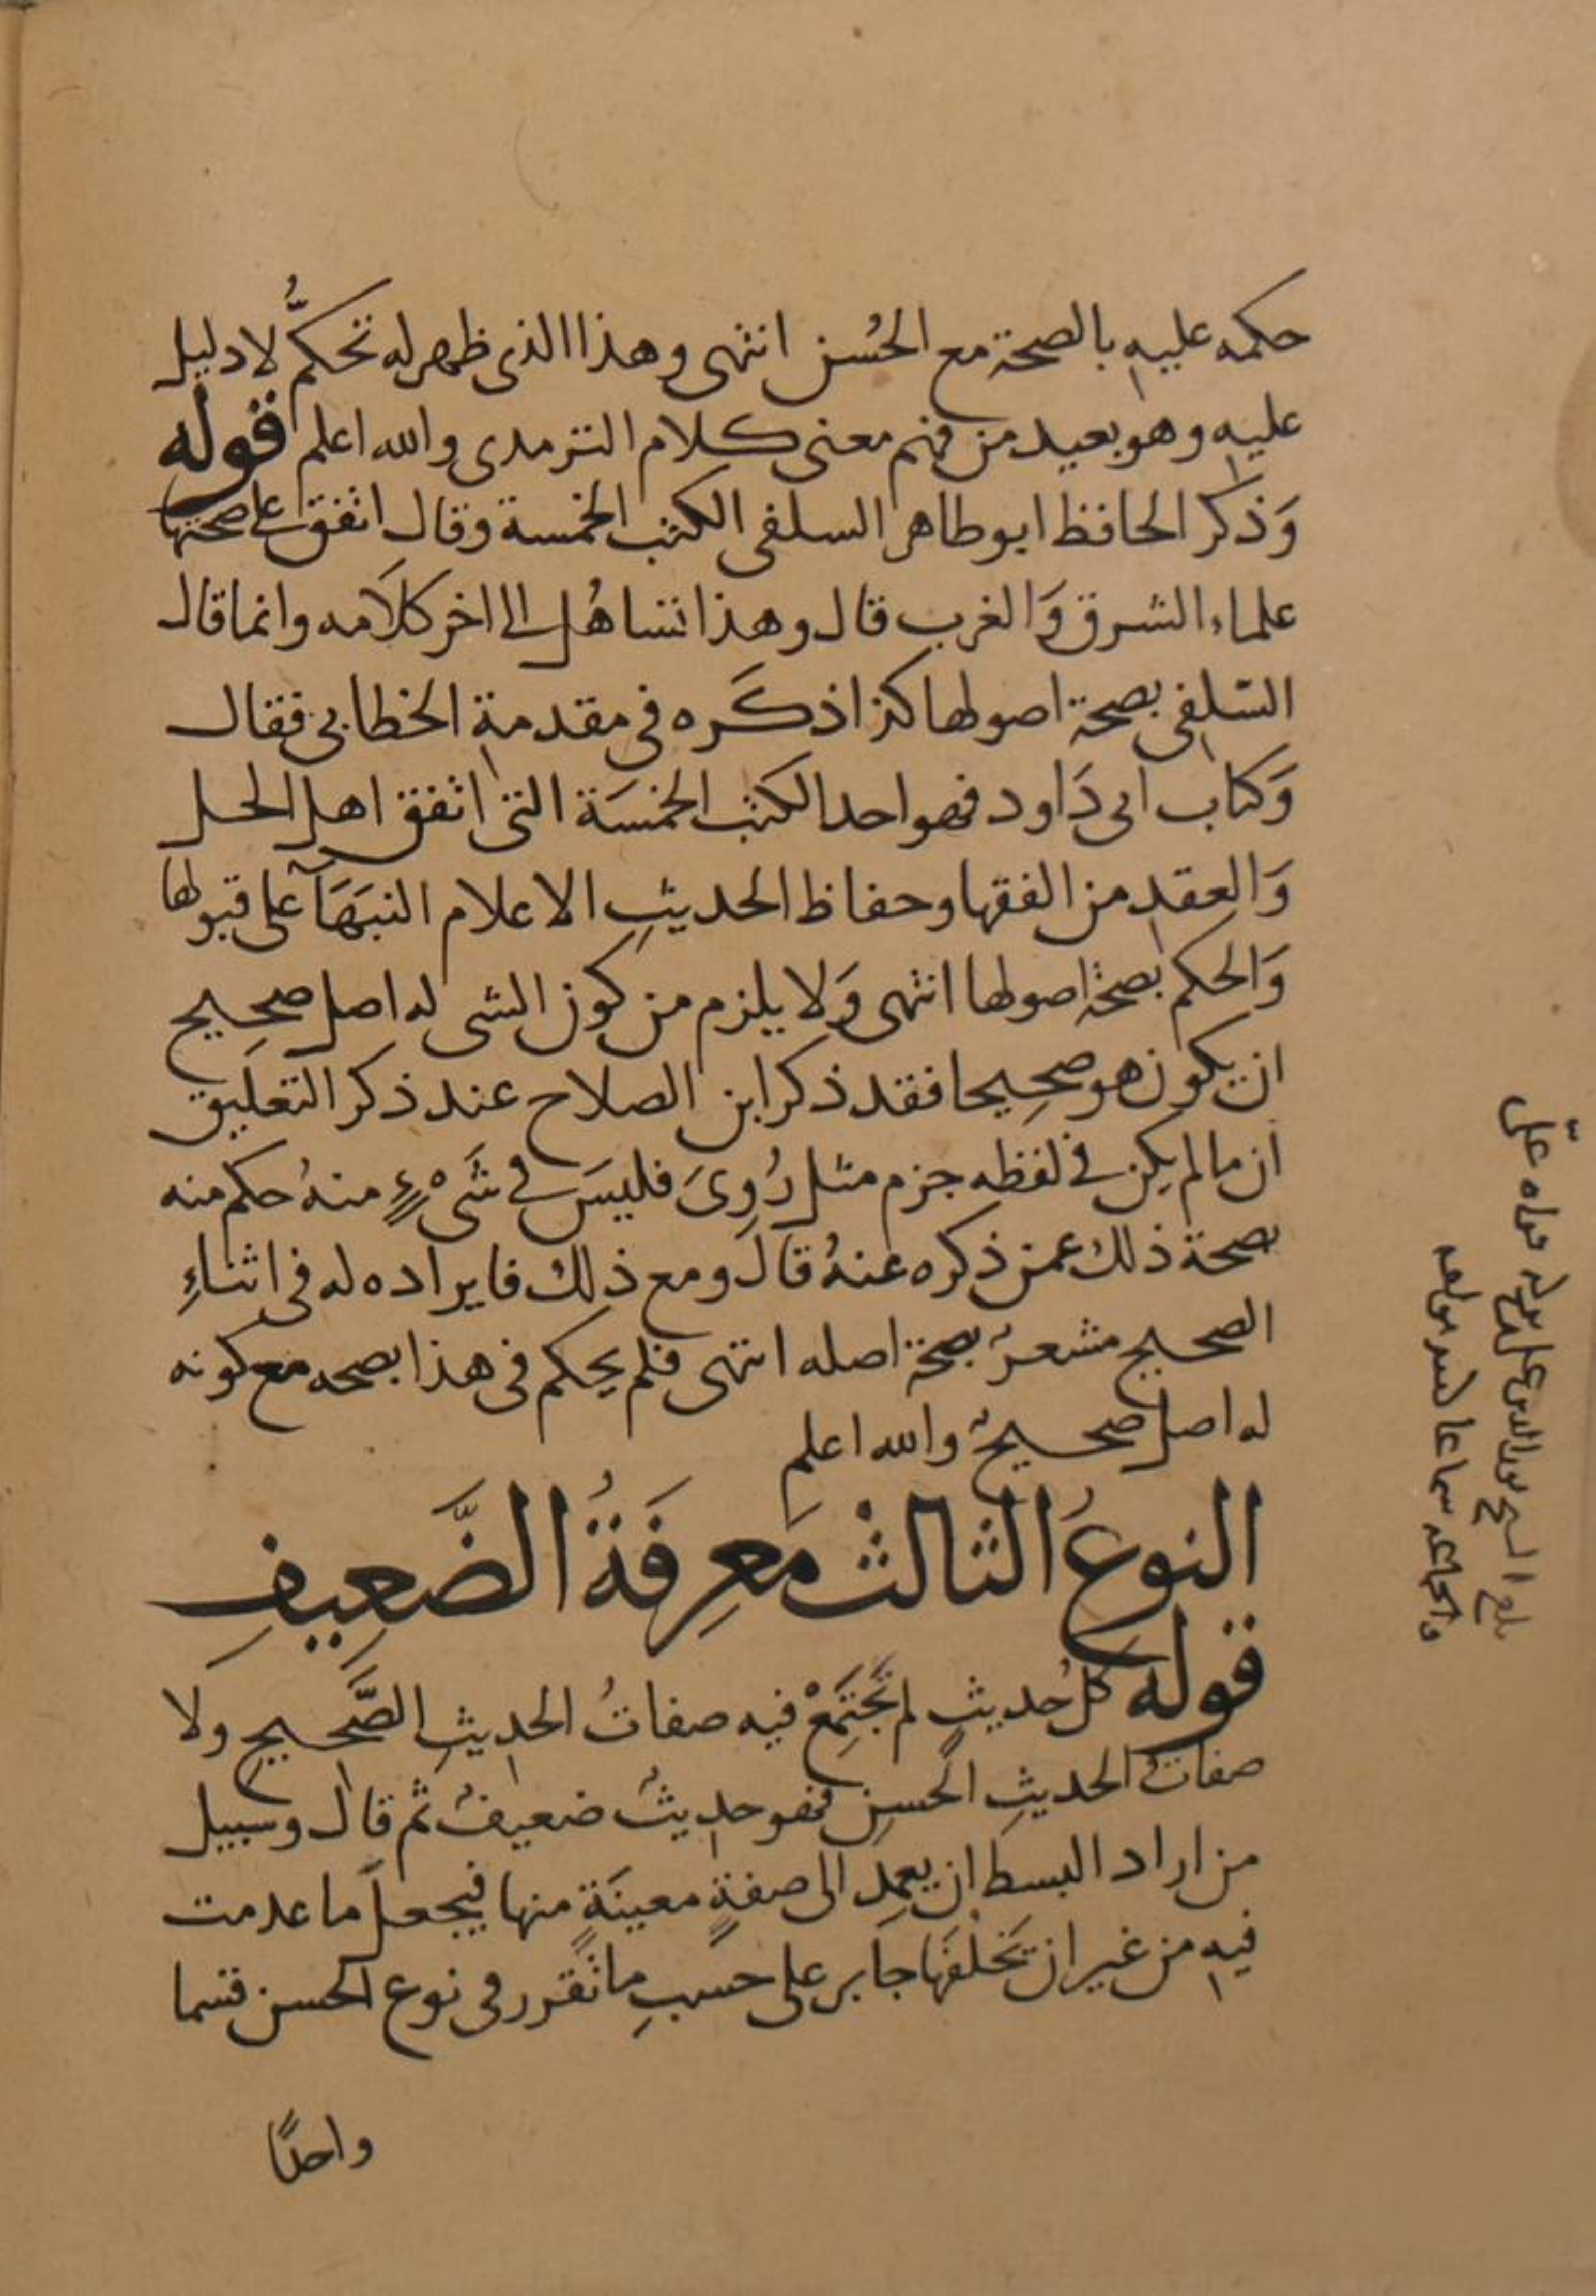 حكمه عليه بالصحة مع الحُسن انتهى وهذا الذى ظهر له تحكمٌّ لا دليل
عليه وهو بعيد من فهم معنى كلام الترمدى والله اعلم قوله
وَذكر الحافظ ابو طاهر السلفى الكتب الخمسة وقال اتفق على صحتها
علماء الشرق وَالغرب قال وهذا تساهُل الى اخر كلاَمه وانما قال
السّلفى بصحة اصولها كذا ذكَره فى مقدمة الخطابى فقال
وَكتاب ابى دَاود فهو احد الكتب الخمسَة التى اتفق اهل الحل
وَالعقد من الفقها وحفاظ الحديث الاعلام النبَهَآ على قبولها
وَالحكم بصحة اصولها انتهى وَلا يلزم من كون الشى له اصل صحيح
ان يكون هو صحِيحا فقد ذكر ابن الصلاح عند ذكر التعليق
ان ما لم يكن فى لفظه جزم مثل رُوِىَ فليسَ فى شَىْءٍ منهُ حكم منه
بصحة ذلك عمن ذكره عنهُ قالَ ومع ذلك فايراده له فى اثناءِ
الصحيح مشعرٌ بصحة اصله انتهى فلم يحكم فى هذا بصحه مع كونه
له اصل صحيحٌ والله اعلم
النوعُ الثالث مَعرِفَةُ الضَّعِيفِ
قوله كلُ حديثٍ لم تَجتَمِعْ فيه صفاتُ الحديثِ الصَّحيحِ ولا
صفاتُ الحديثِ الحسنِ فهو حديثٌ ضعيفٌ ثم قال وسبيل
من اراد البسط ان يعمِد الى صفةٍ معينَةٍ منها فيجعل ما عدمت
فيه من غير ان يَخلُفَها جابر على حسَبِ ما تقرر فى نوع الحسن قسما
واحدًا